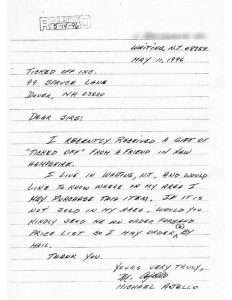 RECEIVED
WHITING, N.J. 08759
MAY 11, 1996
TICKED OFF INC.
99 SPRUCE LANE
DOVER, NH 03820
DEAR SIRS:
I RECENTLY RECEIVED A GIFT OF
"TICKED OFF" FROM A FRIEND IN NEW
HAMPSHIRE.
I LIVE IN WHITING, N.J., AND WOULD
LIKE TO KNOW WHERE IN MY AREA I
MAY PURCHASE THIS ITEM, IF IT IS
NOT SOLD IN MY AREA, WOULD YOU
KINDLY SEND ME AN ORDER FORM AND
PRICE LIST SO I MAY ORDER BY
MAIL.
THANK YOU.
YOURS VERY TRULY,
M. Ajello
MICHAEL AJELLO